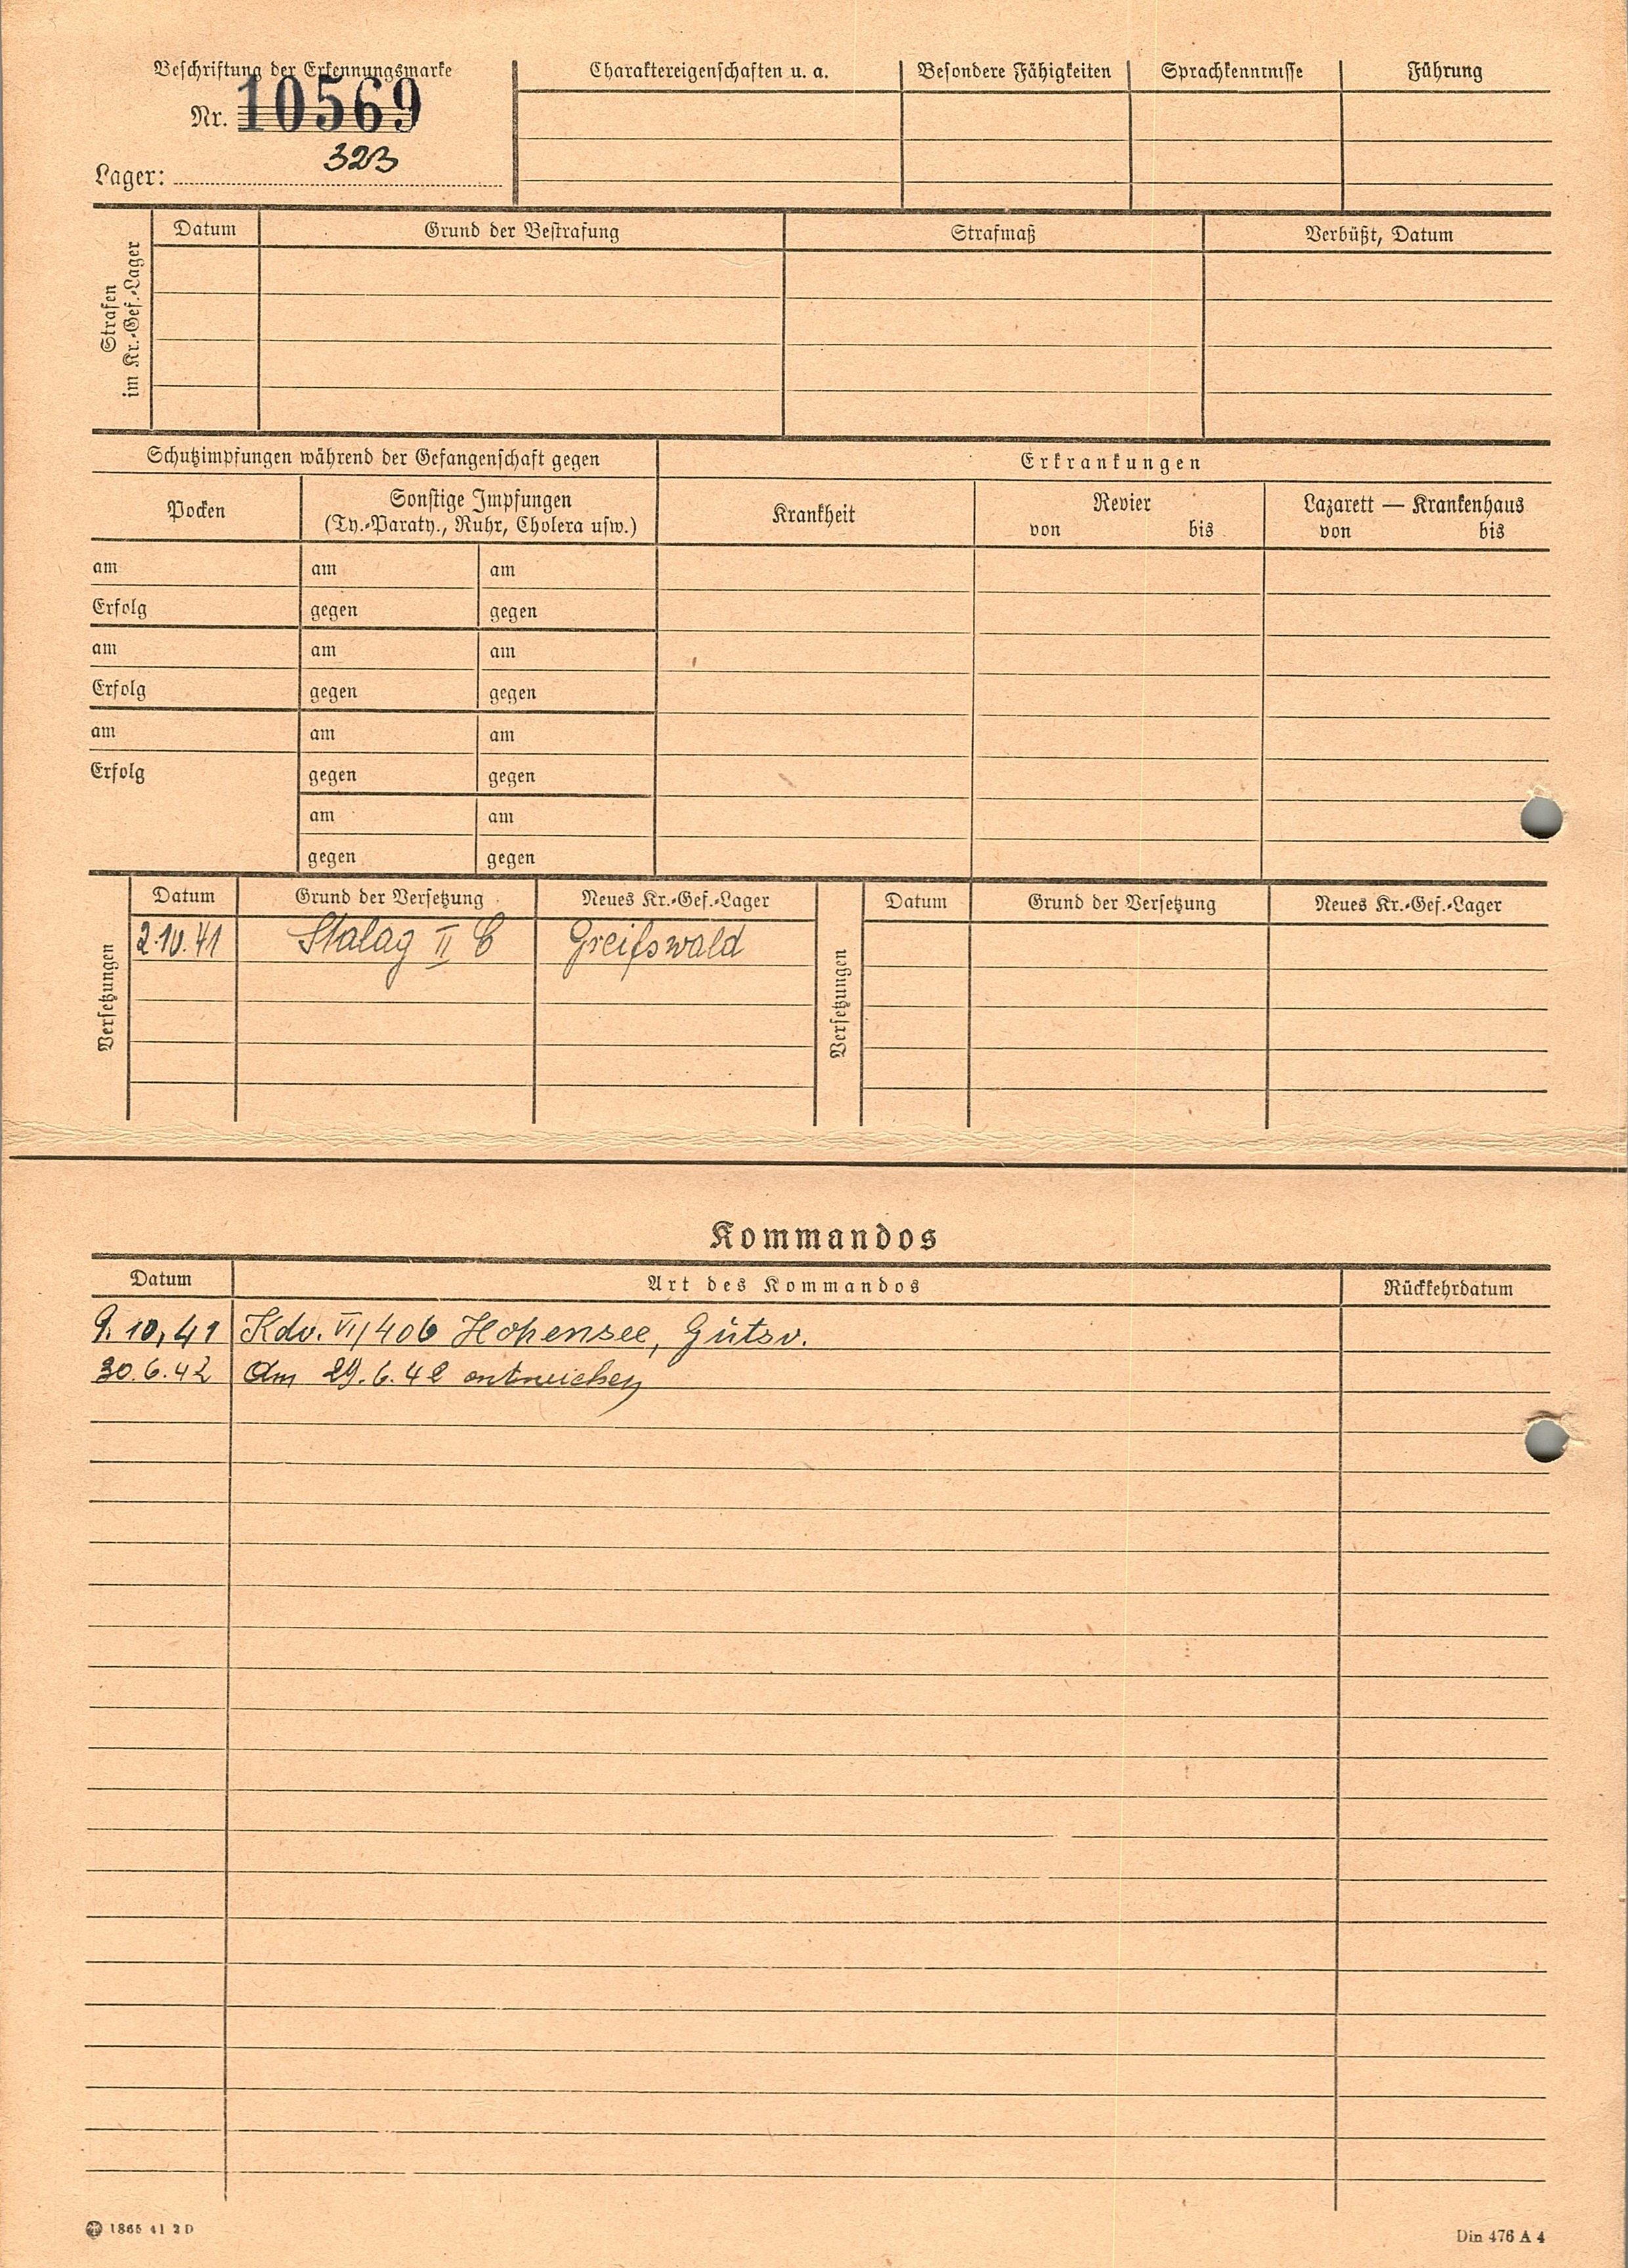 Beschriftung der Erkennungsmarke
Nr. 10569
Lager: 323
Charaktereigenschaften u. a.
Besondere Fähigkeiten
Sprachkenntnisse
Führung
Strafen im Kr.-Gef.-Lager
Datum
Grund der Bestrafung
Strafmaß
Verbüßt, Datum
Schutzimpfungen während der Gefangenschaft gegen
Erkrankungen
Pocken
Sonstige Impfungen
(Ty.-Paraty., Ruhr, Cholera usw.)
Krankheit
Revier
von bis
Lazarett — Krankenhaus
von bis
am am am
Erfolg gegen gegen
am am am
Erfolg gegen gegen
am am am
Erfolg gegen gegen
am am
gegen gegen
Versetzungen
Datum Grund der Versetzung Neues Kr.-Gef.-Lager
2.10.41 Stalag II C Greifswald
Versetzungen
Datum Grund der Versetzung Neues Kr.-Gef.-Lager
Kommandos
Datum Art des Kommandos Rückkehrdatum
9.10.41 Kdo. VI/406 Hohensee, Gutsv.
30.6.42 Am 29.6.42 entwichen
1865 41 2 D
Din 476 A 4